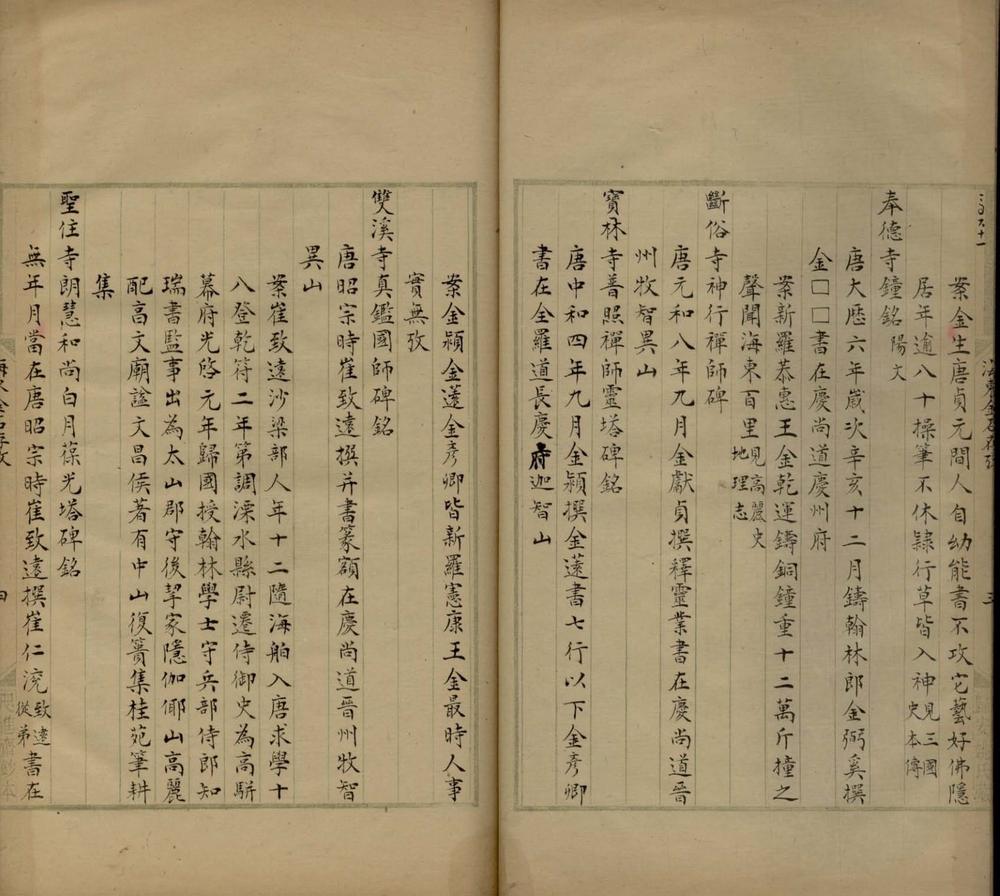 案金生唐貞元間人自幼能書不攻它藝好佛隱
居年逾八十操筆不休隸行草皆入神見三國史本傳
奉德寺鐘銘陽文
唐大歷六年嵗次辛亥十二月鑄翰林郎金弼奚撰
金□□書在慶尚道慶州府
案新羅恭惠王金乾運鑄銅鐘重十二萬斤撞之
聲聞海東百里見高麗史地理志
斷俗寺神行禪師碑
唐元和八年九月金獻貞撰釋靈業書在慶尚道晉
州牧智異山
寶林寺普照禪師靈塔碑銘
唐中和四年九月金穎撰金薳書七行以下金彥卿
書在全羅道長慶府迦智山
案金潁金薳金彥卿皆新羅憲康王金最時人事
實無攷
雙溪寺真鑑國師碑銘
唐昭宗時崔致遠撰并書篆額在慶尚道晉州牧智
異山
案崔致遠沙梁部人年十二隨海舶入唐求學十
八登乾符二年第調溧水縣尉遷侍御史為高駢
幕府光啓元年歸國授翰林學士守兵部侍郎知
瑞書監事出為太山郡守後挈家隱伽倻山高麗
配高文廟諡文昌侯著有中山復簣集桂苑筆耕
集
聖住寺朗慧和尚白月葆光塔碑銘
無年月當在唐昭宗時崔致遠撰崔仁渷致遠從弟書在